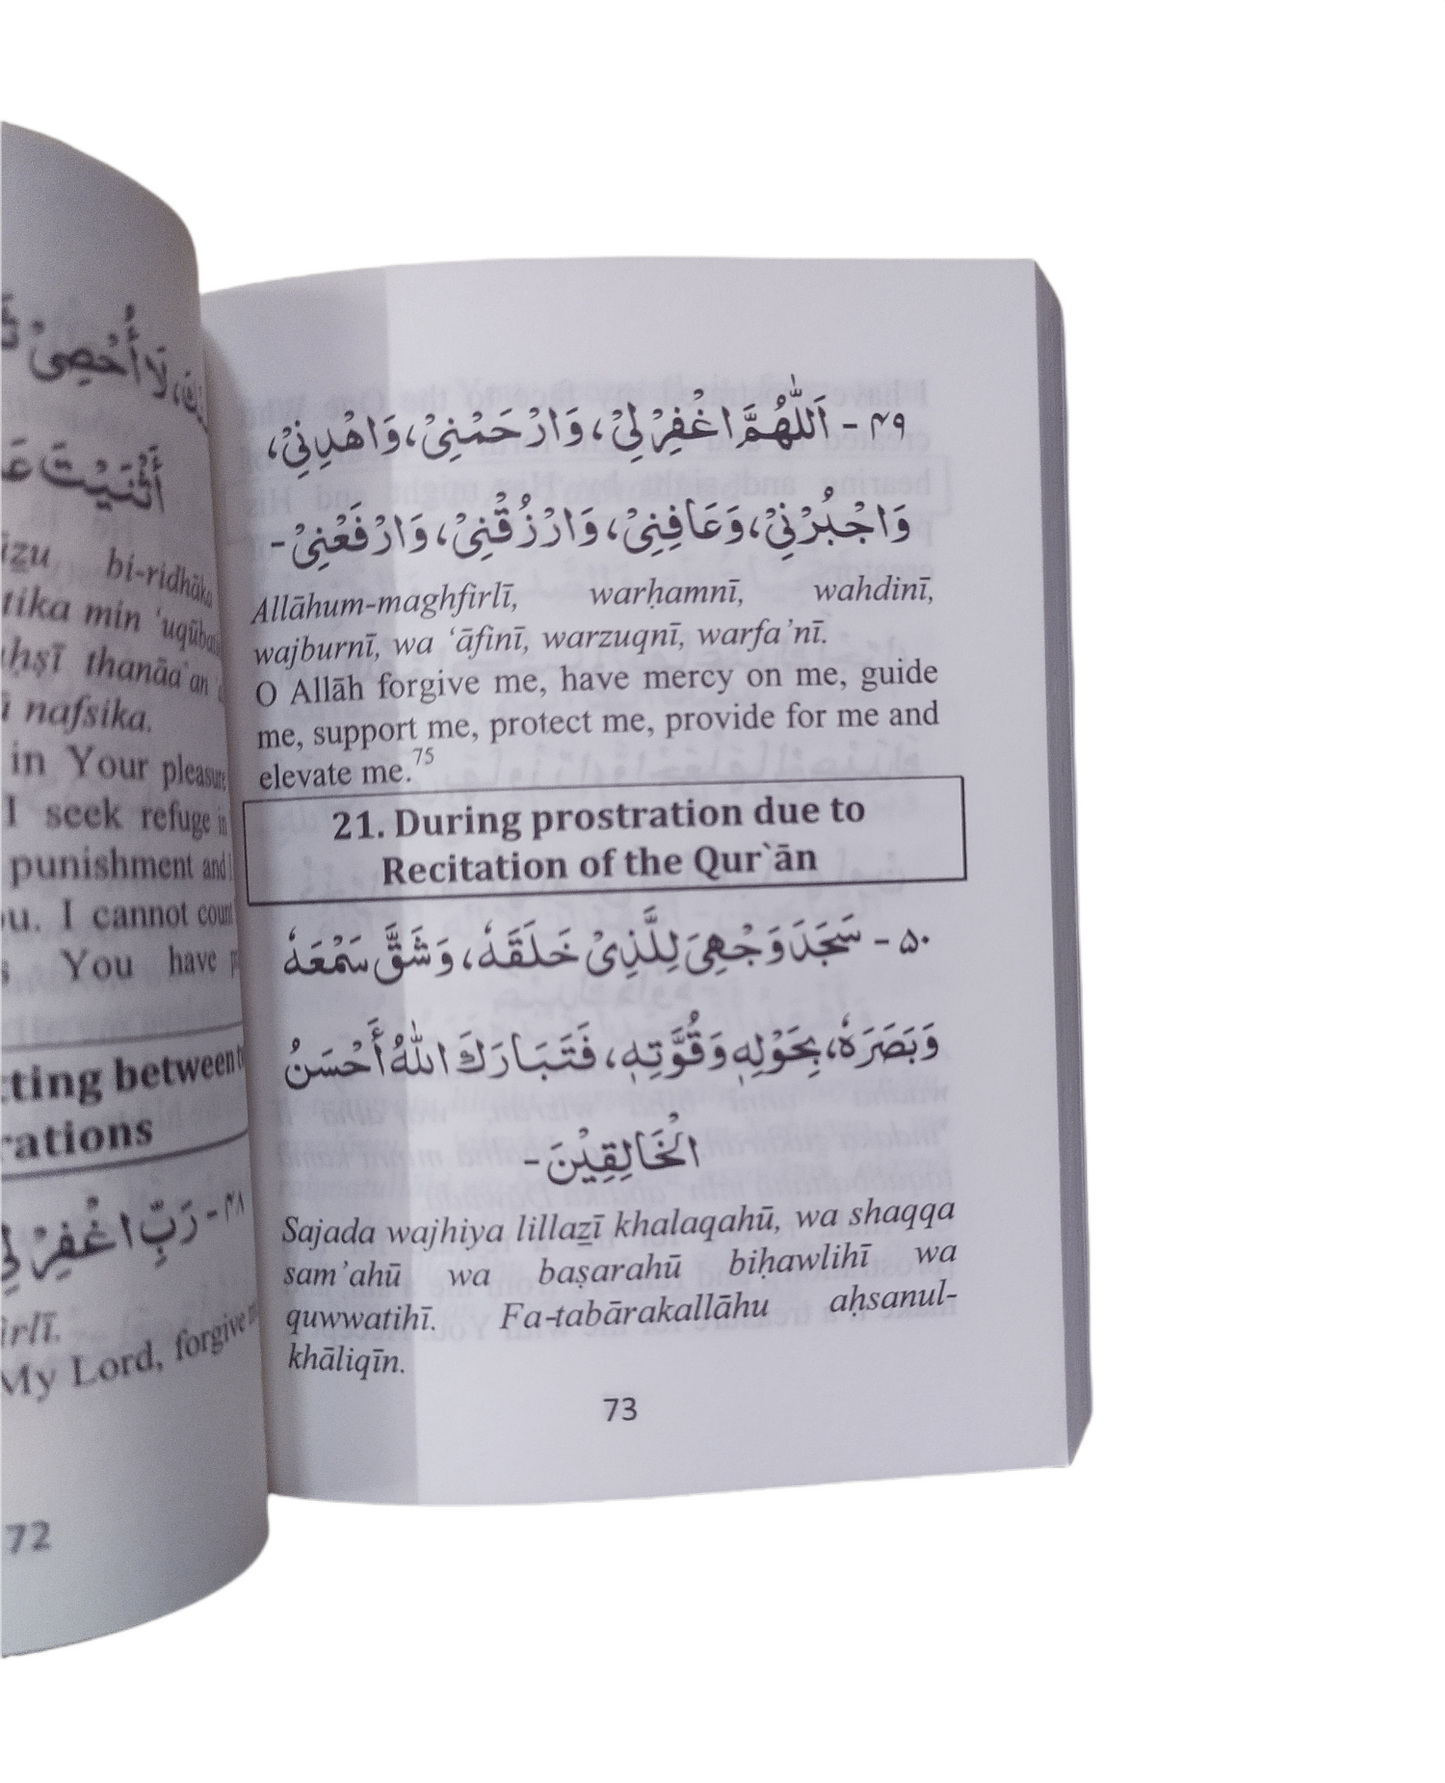 لَا أُحْصِىْ
أَثْنَيْتَ
bi-ridhāka
tika min ʻuqūba
thanāaˋan
nafsika.
in Your pleasure
I seek refuge in
punishment and
I cannot count
You have
between
۴۸- رَبِّ اغْفِرْ لِىْ
My Lord, forgive
72
۴۹ - اَللّٰهُمَّ اغْفِرْ لِىْ، وَارْحَمْنِىْ، وَاهْدِنِىْ،
وَاجْبُرْنِىْ، وَعَافِنِىْ، وَارْزُقْنِىْ، وَارْفَعْنِىْ -
Allāhum-maghfirlī, warḥamnī, wahdinī,
wajburnī, wa ‘āfinī, warzuqnī, warfa’nī.
O Allāh forgive me, have mercy on me, guide
me, support me, protect me, provide for me and
elevate me.75
21. During prostration due to
Recitation of the Qur`ān
۵۰ - سَجَدَ وَجْهِىَ لِلَّذِىْ خَلَقَهٗ، وَشَقَّ سَمْعَهٗ
وَبَصَرَهٗ، بِحَوْلِهٖ وَقُوَّتِهٖ، فَتَبَارَكَ اللّٰهُ أَحْسَنُ
الْخَالِقِيْنَ -
Sajada wajhiya lillazī khalaqahū, wa shaqqa
sam’ahū wa baṣarahū biḥawlihī wa
quwwatihī. Fa-tabārakallāhu aḥsanul-
khāliqīn.
73